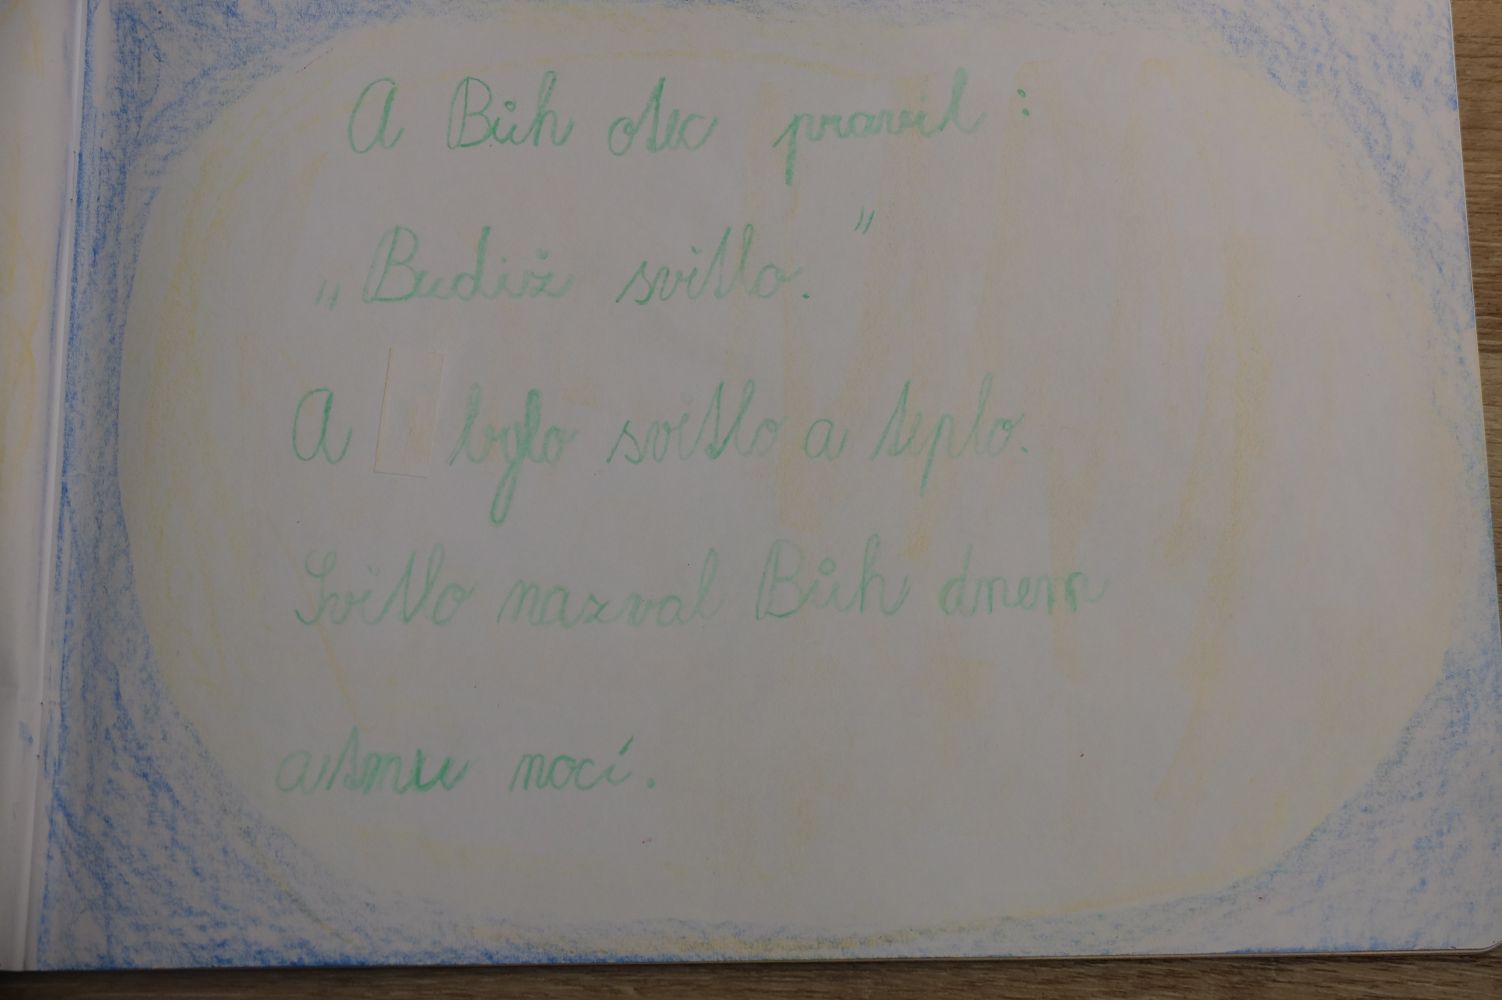 A Bůh otec pravil:
„Budiž světlo."
A bylo světlo a teplo.
Světlo nazval Bůh dnem
a tmu nocí.